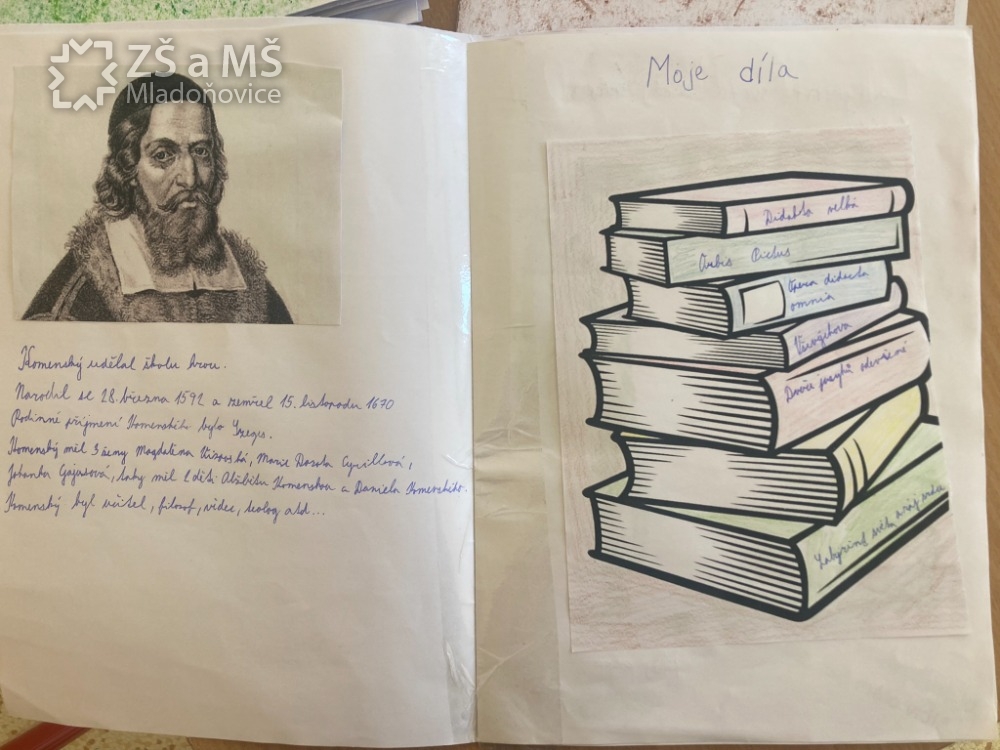 ZŠ a MŠ
Mladoňovice
Komenský udělal školu hrou.
Narodil se 28. března 1592 a zemřel 15. listopadu 1670
Rodinné příjmení Komenského bylo Szeges.
Komenský měl 3 ženy Magdaléna Vizovská, Marie Dorota Cyrillová,
Johanka Gajusová, taky měl 2 děti Alžbětu Komenskou a Daniela Komenského.
Komenský byl učitel, filosof, vědec, teolog atd...
Moje díla
Didakta velká
Orbis Pictus
Opera didacta
omnia
Dveře jazyků otevřené
Labyrint světa a ráj srdce